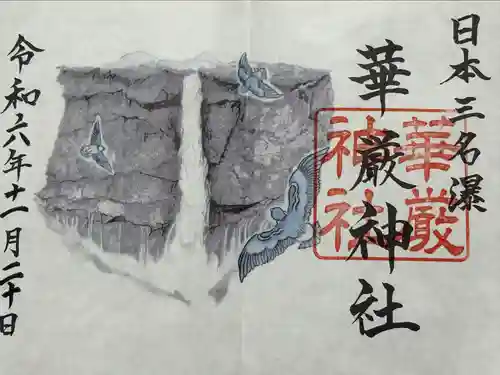 日本三名瀑
華厳神社
華嚴
神社
令和六年十一月二十日